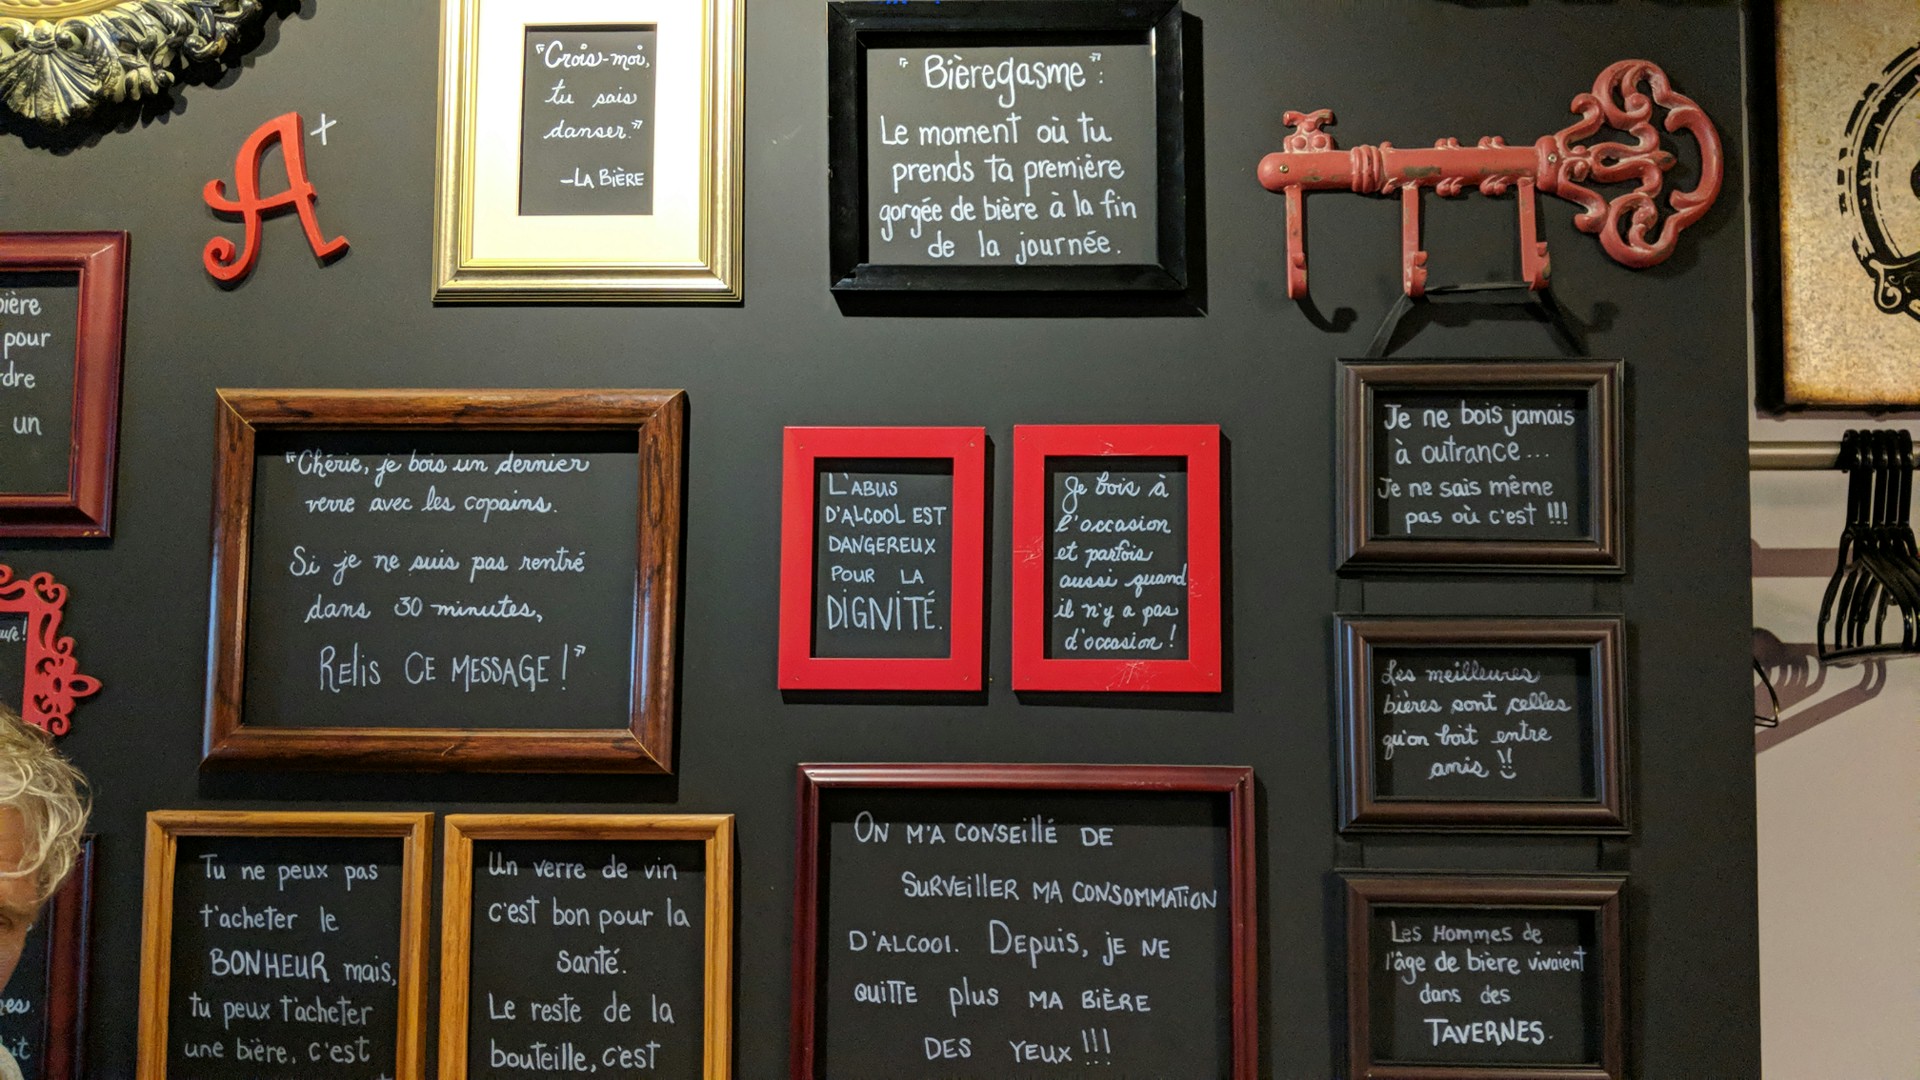 "Crois-moi,
tu sais
danser."
-LA BIÈRE
"Bièregasme":
Le moment où tu
prends ta première
gorgée de bière à la fin
de la journée.
A+
bière
pour
un
"Chérie, je bois un dernier
verre avec les copains.
Si je ne suis pas rentré
dans 30 minutes,
RELIS CE MESSAGE!"
L'ABUS
D'ALCOOL EST
DANGEREUX
POUR LA
DIGNITÉ.
Je bois à
l'occasion
et parfois
aussi quand
il n'y a pas
d'occasion!
Je ne bois jamais
à outrance...
Je ne sais même
pas où c'est !!!
Les meilleures
bières sont celles
qu'on boit entre
amis !!
Les Hommes de
l'âge de bière vivaient
dans des
TAVERNES.
Tu ne peux pas
t'acheter le
BONHEUR mais,
tu peux t'acheter
une bière, c'est
Un verre de vin
c'est bon pour la
santé.
Le reste de la
bouteille, c'est
ON M'A CONSEILLÉ DE
SURVEILLER MA CONSOMMATION
D'ALCOOL. Depuis, JE NE
QUITTE plus MA BIÈRE
DES YEUX !!!